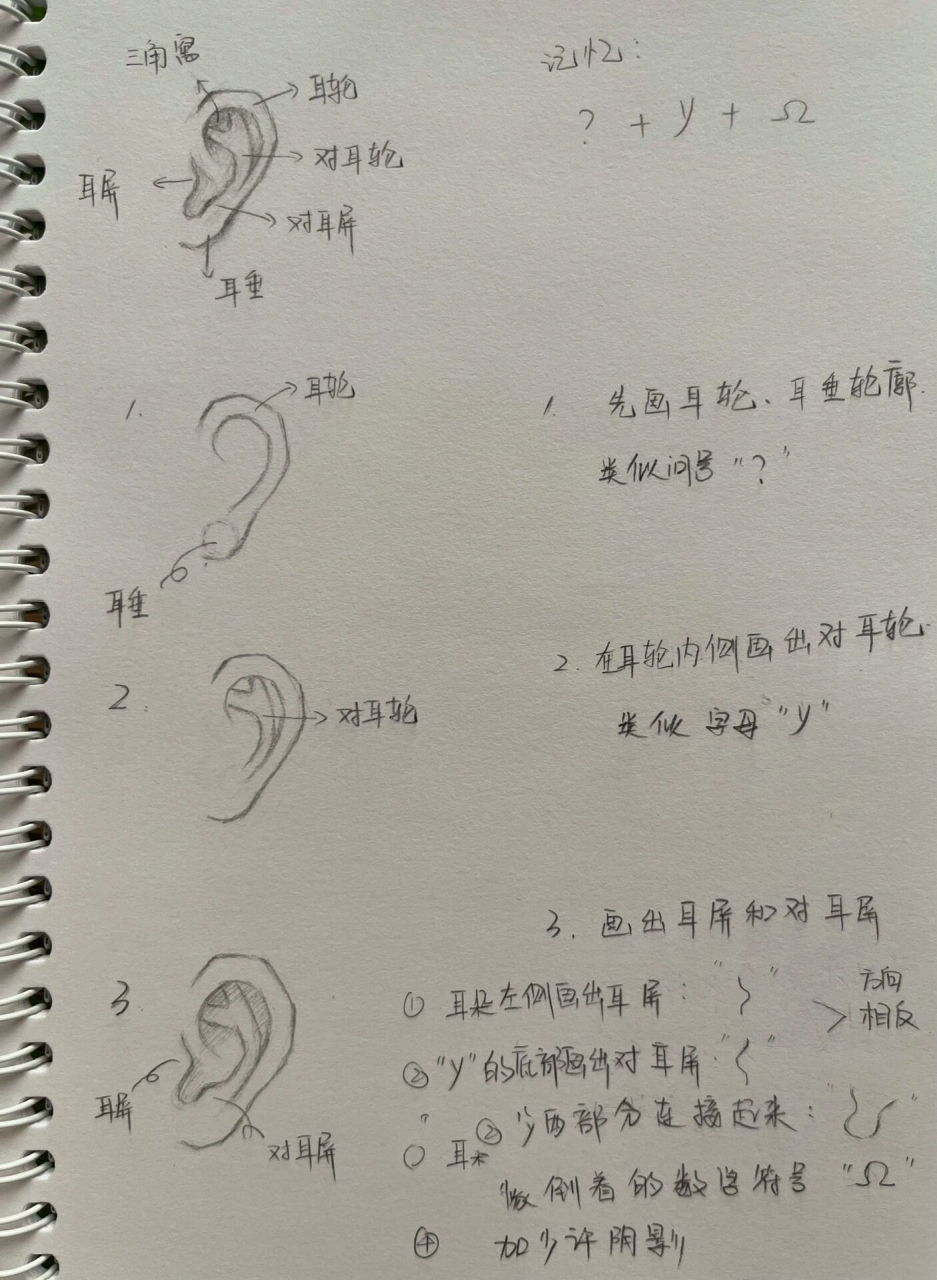 三角窝
记忆:
耳轮
? + y + Ω
对耳轮
耳屏
对耳屏
耳垂
1.
耳轮
1. 先画耳轮、耳垂轮廓.
类似问号"?"
耳垂
2.
对耳轮
2. 在耳轮内侧画出对耳轮.
类似字母"y"
3. 画出耳屏和对耳屏
3.
① 耳朵左侧画出耳屏:
方向
相反
② "y"的底部画出对耳屏:
耳屏
② 两部分连接起来:
对耳屏
倒着的数学符号"Ω"
④ 加少许阴影